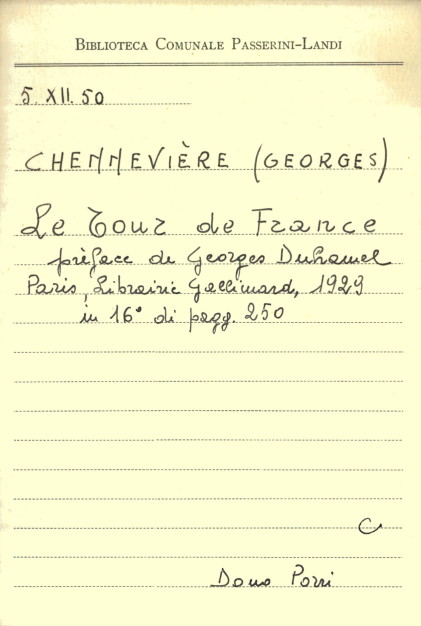 BIBLIOTECA COMUNALE PASSERINI-LANDI
5. XII. 50
CHENNEVIÈRE (GEORGES)
Le Tour de France
préface de Georges Duhamel
Paris, Librairie Gallimard, 1929
in 16° di pagg. 250
C
Dono Porri